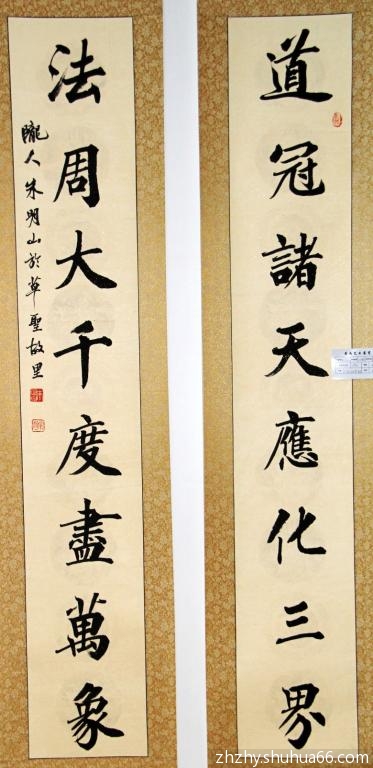 道冠諸天應化三界
法周大千度盡萬象
隴人朱明山於草聖故里
zhzhy.shuhua66.com